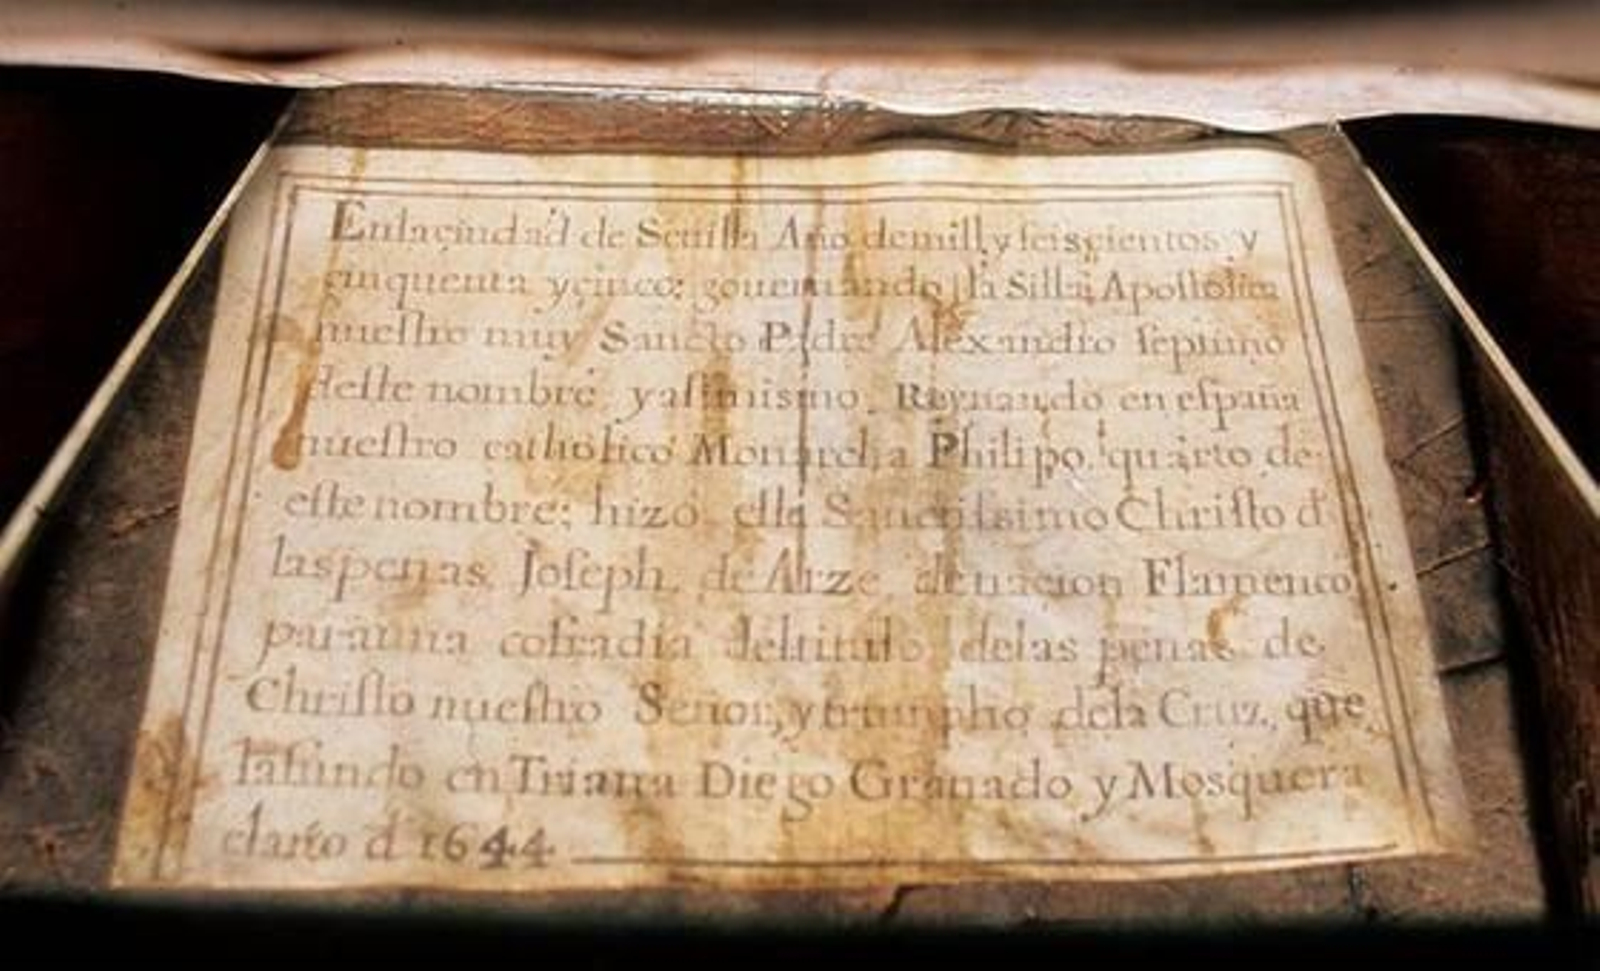 Enlaçiudad de Seuilla Año demill y seisçientos y
çinquenta yçinco: gouernando la Silla Apostolica
nuestro muy Sancto Padre Alexandro septimo
deste nombre yasimismo Reynando en españa
nuestro catholico Monarcha Philipo quarto de
este nombre: hizo este Sanctissimo Christo d
las penas Joseph de Arze de nacion Flamenco
para una cofradia deltitulo delas penas de
Christo nuestro Señor, y triumpho dela Cruz, que
la fundo en Triana Diego Granado y Mosquera
elaño d 1644